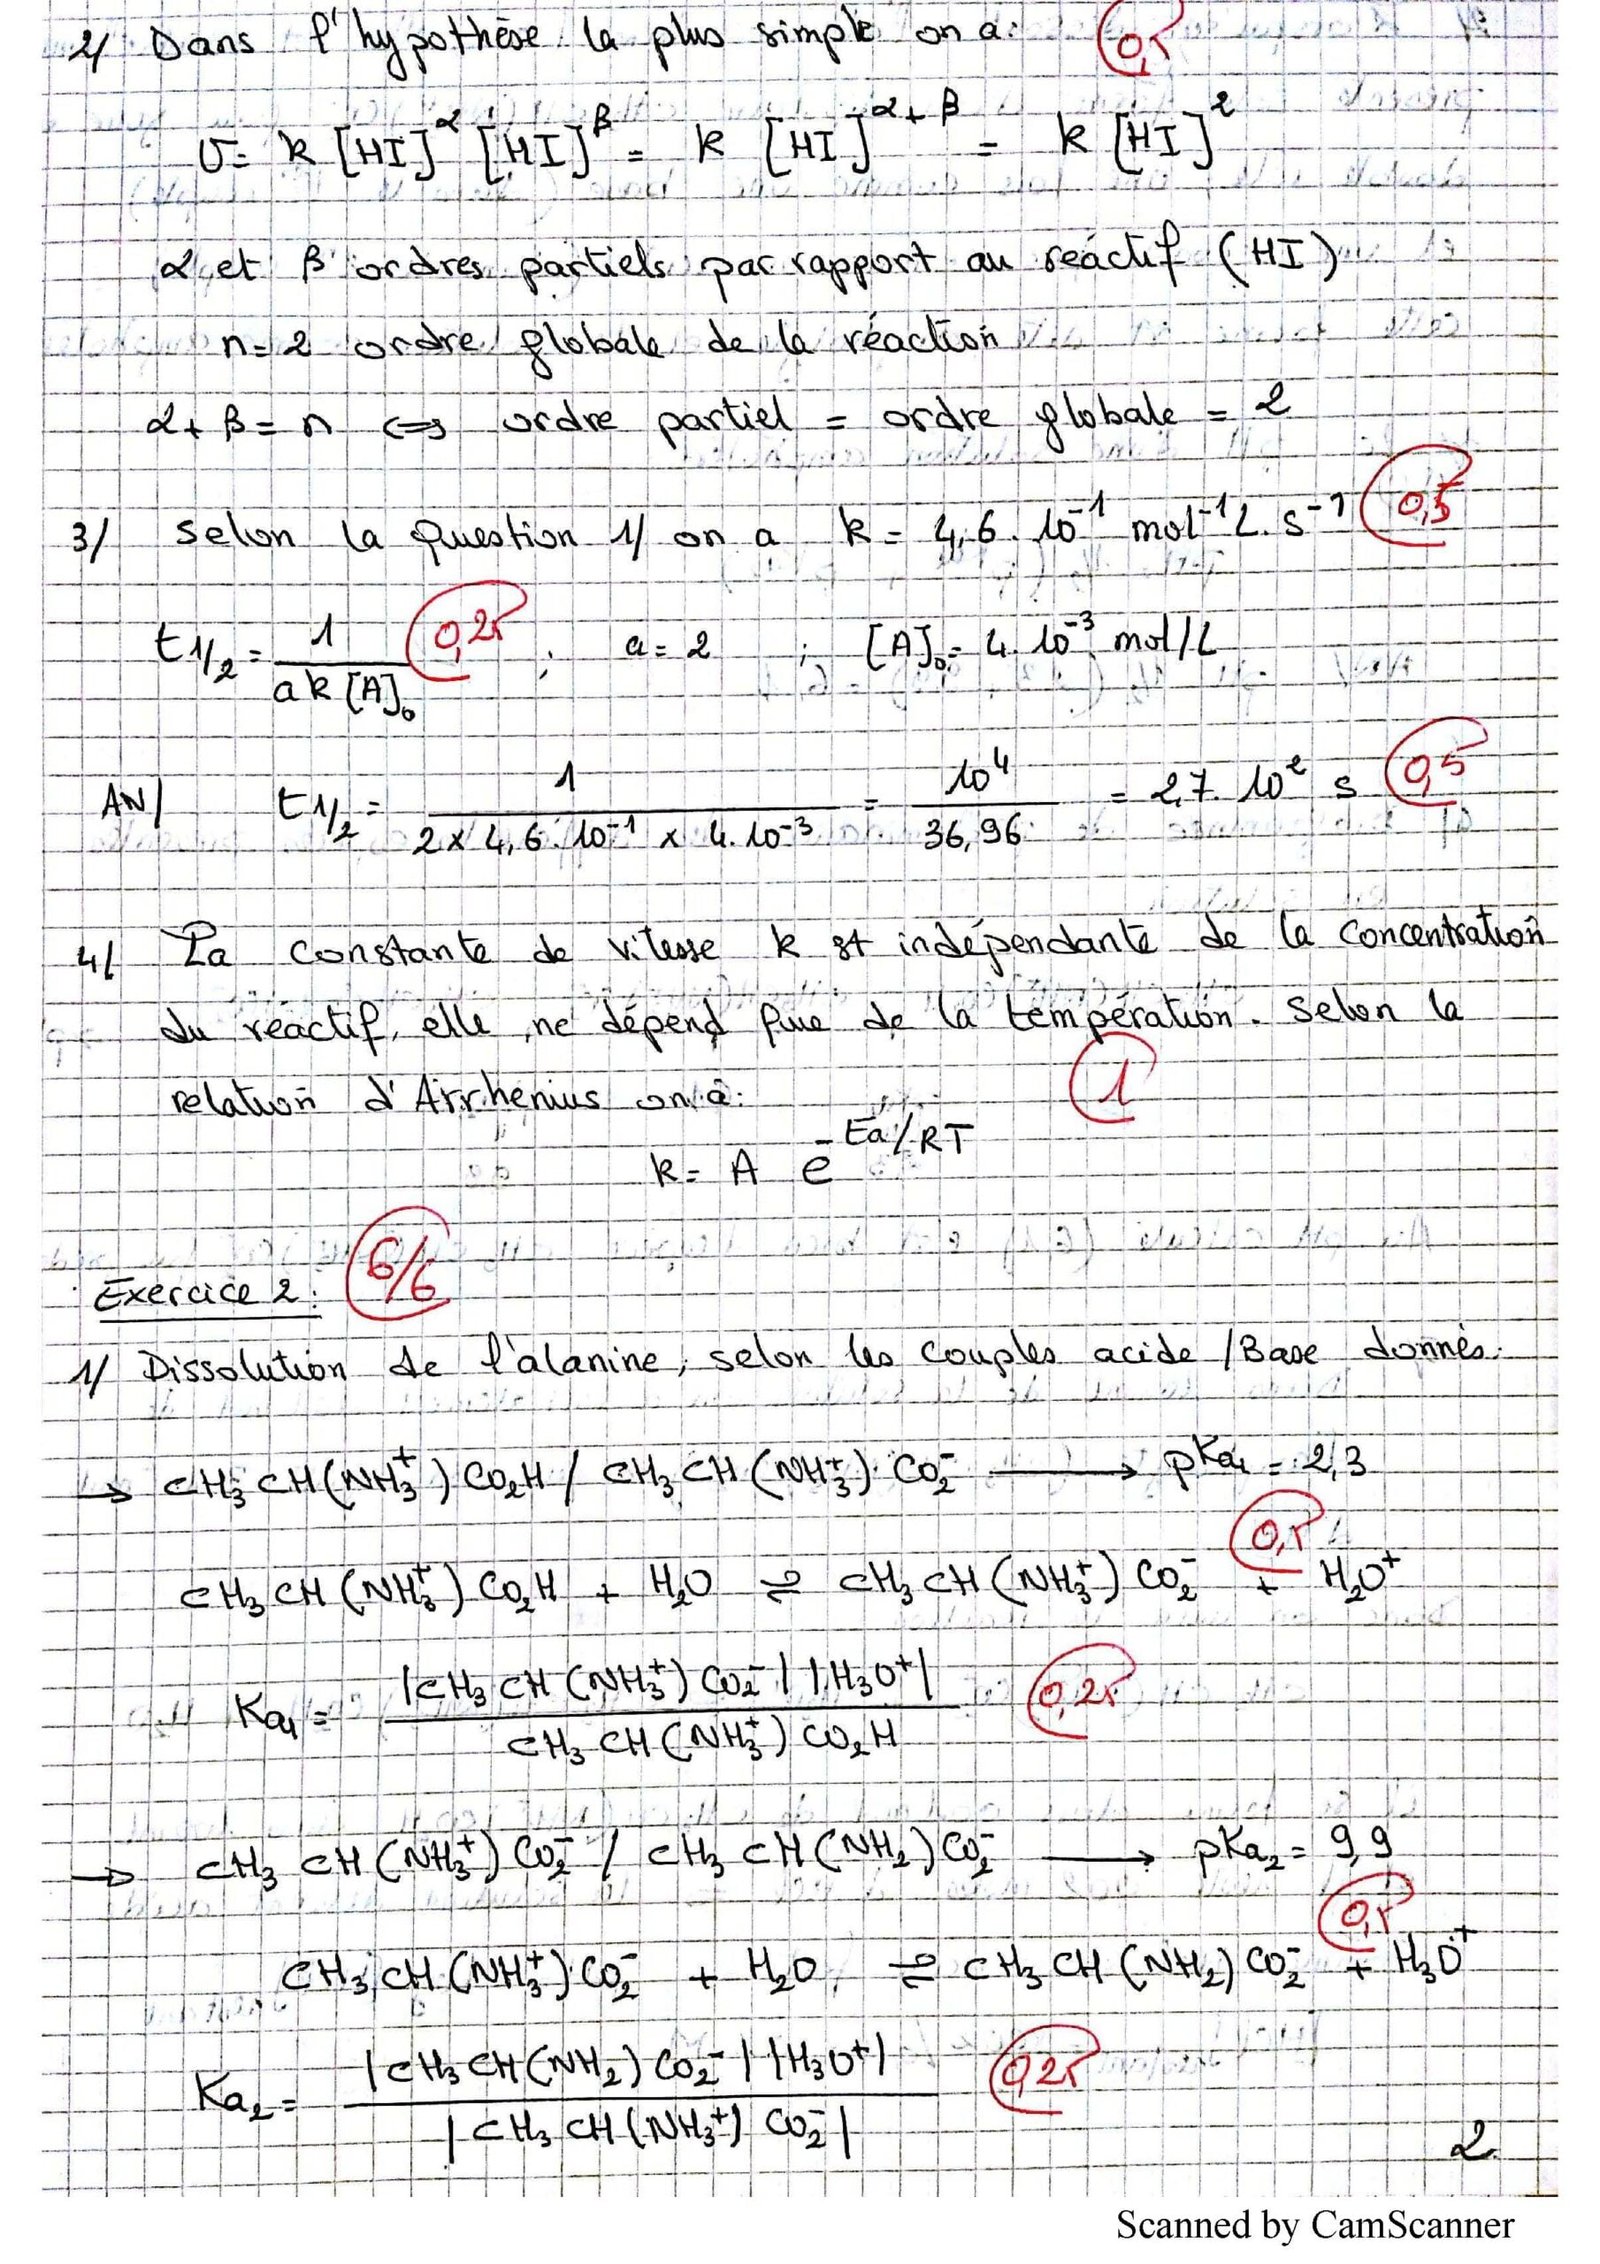 2/ Dans l'hypothèse la plus simple on a: 0,5
V = k [HI]^α [HI]^β = k [HI]^α+β = k [HI]^2
α et β ordres partiels par rapport au réactif (HI)
n = 2 ordre globale de la réaction
α + β = n ⇔ ordre partiel = ordre globale = 2
3/ selon la question 1/ on a k = 4,6 . 10^-1 mol^-1 L. s^-1 0,5
t1/2 = 1 / a k [A]₀ 0,25 ; a = 2 ; [A]₀ = 4. 10^-3 mol/L
AN/ t1/2 = 1 / 2 x 4,6. 10^-1 x 4. 10^-3 = 10^4 / 36,96 = 2,7. 10^2 s 0,5
4/ La constante de vitesse k est indépendante de la concentration
du réactif, elle ne dépend que de la température. Selon la
relation d'Arrhenius on a: 1
k = A e^-Ea/RT
Exercice 2: 6/6
1/ Dissolution de l'alanine, selon les couples acide /Base donnés.
→ CH₃ CH(NH₃⁺) CO₂H / CH₃ CH (NH₃⁺) CO₂⁻ ⟶ pKa₁ = 2,3
CH₃ CH (NH₃⁺) CO₂H + H₂O ⇌ CH₃ CH (NH₃⁺) CO₂⁻ + H₂O⁺ 0,5
Ka₁ = |CH₃ CH (NH₃⁺) CO₂⁻| |H₃O⁺| / CH₃ CH (NH₃⁺) CO₂H 0,25
→ CH₃ CH (NH₃⁺) CO₂⁻ / CH₃ CH (NH₂) CO₂⁻ ⟶ pKa₂ = 9,9
CH₃ CH (NH₃⁺) CO₂⁻ + H₂O ⇌ CH₃ CH (NH₂) CO₂⁻ + H₃O⁺ 0,5
Ka₂ = |CH₃ CH (NH₂) CO₂⁻| |H₃O⁺| / |CH₃ CH (NH₃⁺) CO₂⁻| 0,25
2
Scanned by CamScanner